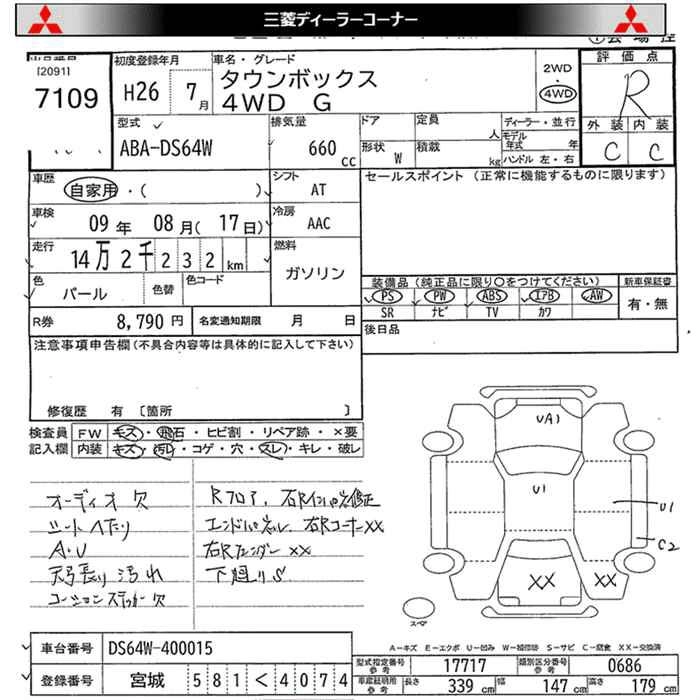 三菱ディーラーコーナー
[2091]
7109
初度登録年月
H26 7 月
車名・グレード
タウンボックス
4WD G
2WD
4WD
評価点
R
外装 内装
C C
型式
ABA-DS64W
排気量
660 cc
ドア
形状 W
定員 人
積載 kg
ディーラー・並行
モデル年式 年
ハンドル 左・右
車歴
自家用・( )
シフト
AT
セールスポイント (正常に機能するものに限ります)
車検
09 年 08 月( 17 日)
冷房
AAC
走行
14 万 2 千 2 3 2 km
燃料
ガソリン
色
パール
色替
色コード
装備品 (純正品に限り○をつけてください)
PS PW ABS エアB AW
SR ナビ TV カワ
新車保証書
有・無
R券 8,790 円
名変通知期限 月 日
後日品
注意事項申告欄(不具合内容等は具体的に記入して下さい)
修復歴 有 [箇所 ]
検査員 FW キズ・飛石・ヒビ割・リペア跡・×要
記入欄 内装 キズ・汚れ・コゲ・穴・スレ・キレ・破レ
オーディオ欠
シートへたり
A・U
天張り汚れ
コーションステッカー欠
Rフロア、右Rインパネ修正
エンドパネル、右RコーナーXX
右Rフェンダー XX
下廻りS
UA1
U1
U1
C2
XX
XX
スペア
A-キズ E-エクボ U-凹み W-補修跡 S-サビ C-腐食 XX-交換済
車台番号 DS64W-400015
登録番号 宮城 5 8 1 < 4 0 7 4
型式指定番号 参考 17717
類別区分番号 参考 0686
車庫証明用 参考 長さ 339 cm 幅 147 cm 高さ 179 cm